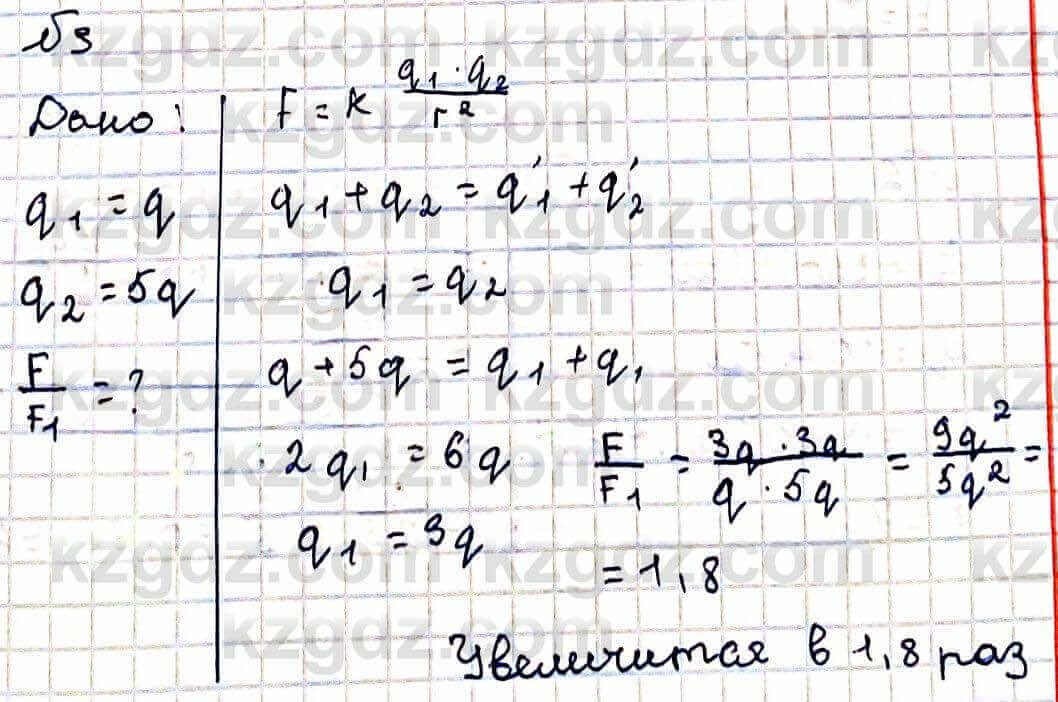 №3
Дано:
q₁ = q
q₂ = 5q
F/F₁ = ?
F = k (q₁ · q₂)/r²
q₁ + q₂ = q₁' + q₂'
q₁ = q₂
q + 5q = q₁ + q₁
2q₁ = 6q
q₁ = 3q
F/F₁ = (3q · 3q)/(q · 5q) = 9q²/5q² =
= 1,8
Увеличится в 1,8 раз
kzgdz.com